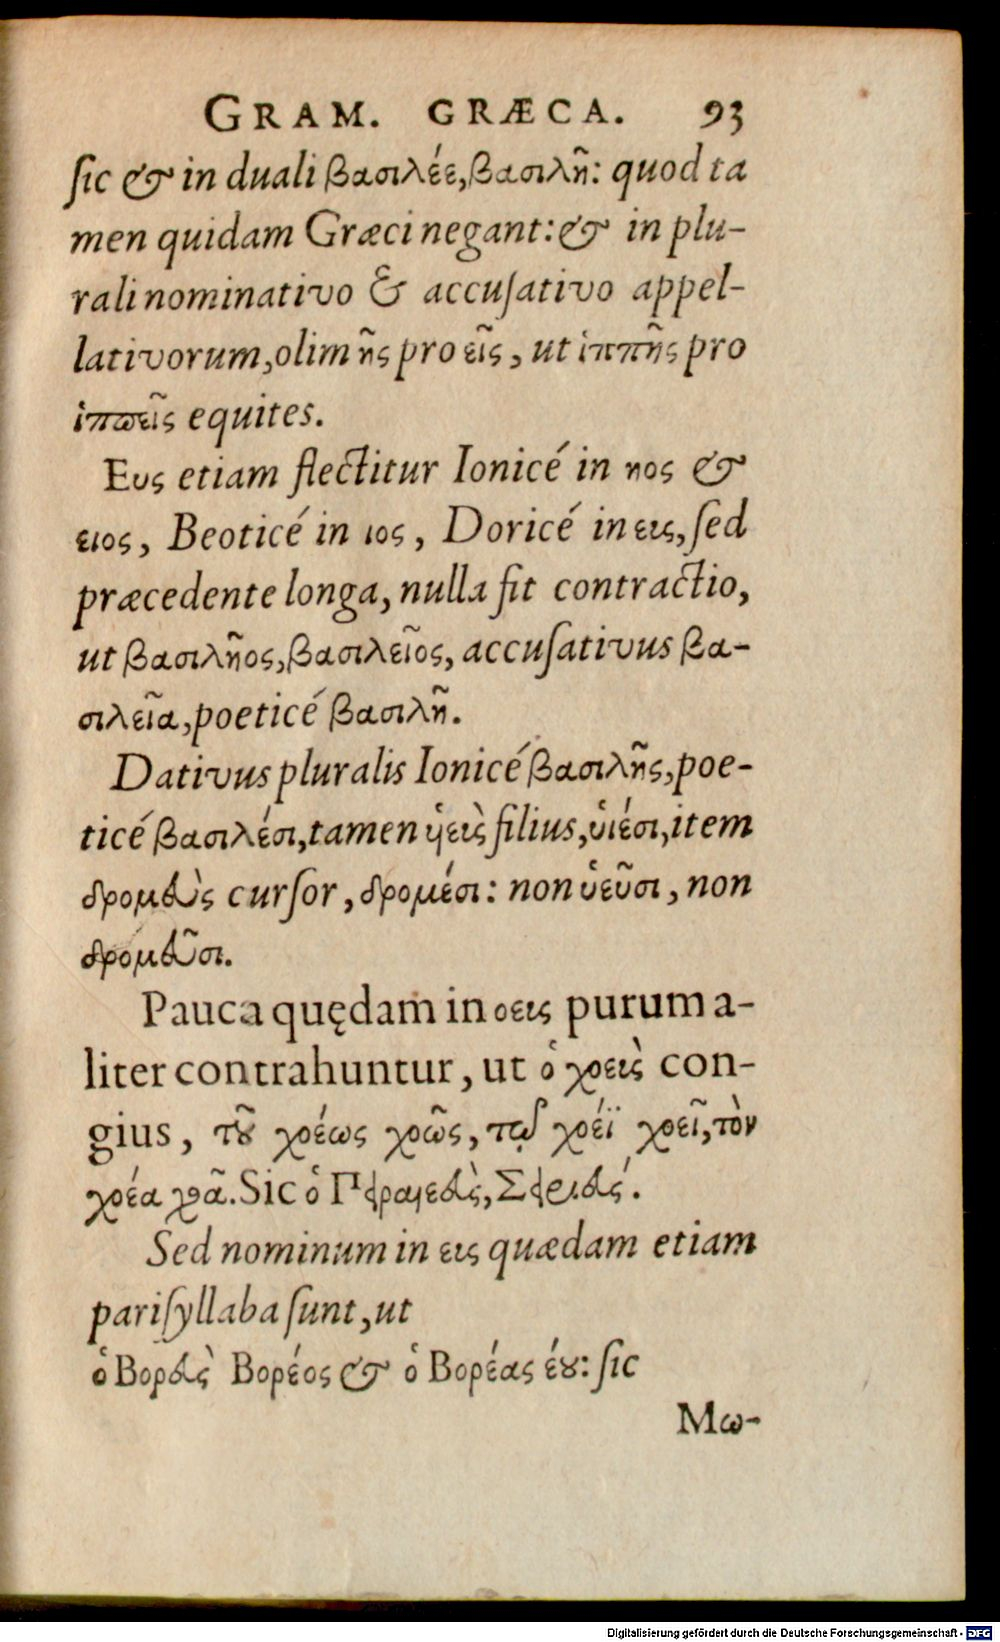 GRAM. GRÆCA. 93
ſic & in duali βασιλέε, βασιλῆ: quod ta
men quidam Græci negant: & in plu-
rali nominativo & accuſativo appel-
lativorum, olim ῆς pro εῖς, ut ἱππῆς pro
ἱππεῖς equites.
Ευς etiam flectitur Ionicé in ηος &
ειος, Beoticé in ιος, Doricé in εις, ſed
præcedente longa, nulla fit contractio,
ut βασιλῆος, βασιλεῖος, accuſativus βα-
σιλεῖα, poeticé βασιλῆ.
Dativus pluralis Ionicé βασιλῆς, poe-
ticé βασιλέσι, tamen filius, ὑιέσι, item
δρομεὺς curſor, δρομέσι: non ὑεῦσι, non
δρομεῦσι.
Pauca quędam in οεις purum a-
liter contrahuntur, ut ὁ χοεὶς con-
gius, τοῦ χοέως χοῶς, τῷ χοέϊ χοεῖ, τὸν
χοέα χοᾶ. Sic ὁ
Sed nominum in εις quædam etiam
pariſyllaba ſunt, ut
ὁ Βορεὺς Βορέος & ὁ Βορέας έου: ſic
Μω-
Digitalisierung gefördert durch die Deutsche Forschungsgemeinschaft - DFG